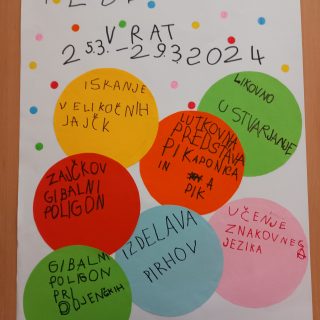 V RAT
25.3. – 29.3 2024
ISKANJE
VELIKOČNIH
JAJČK
LIKOVNO
USTVARJANJE
LUTKOVNA
PREDSTAVA
PIKAPONICA
IN A
PIK
ZAJČKOV
GIBALNI
POLIGON
UČENJE
ZNAKOVNEGA
JEZIKA
IZDELAVA
PIRHOV
GIBALNI
POLIGON
PRI
DOJENČKIH